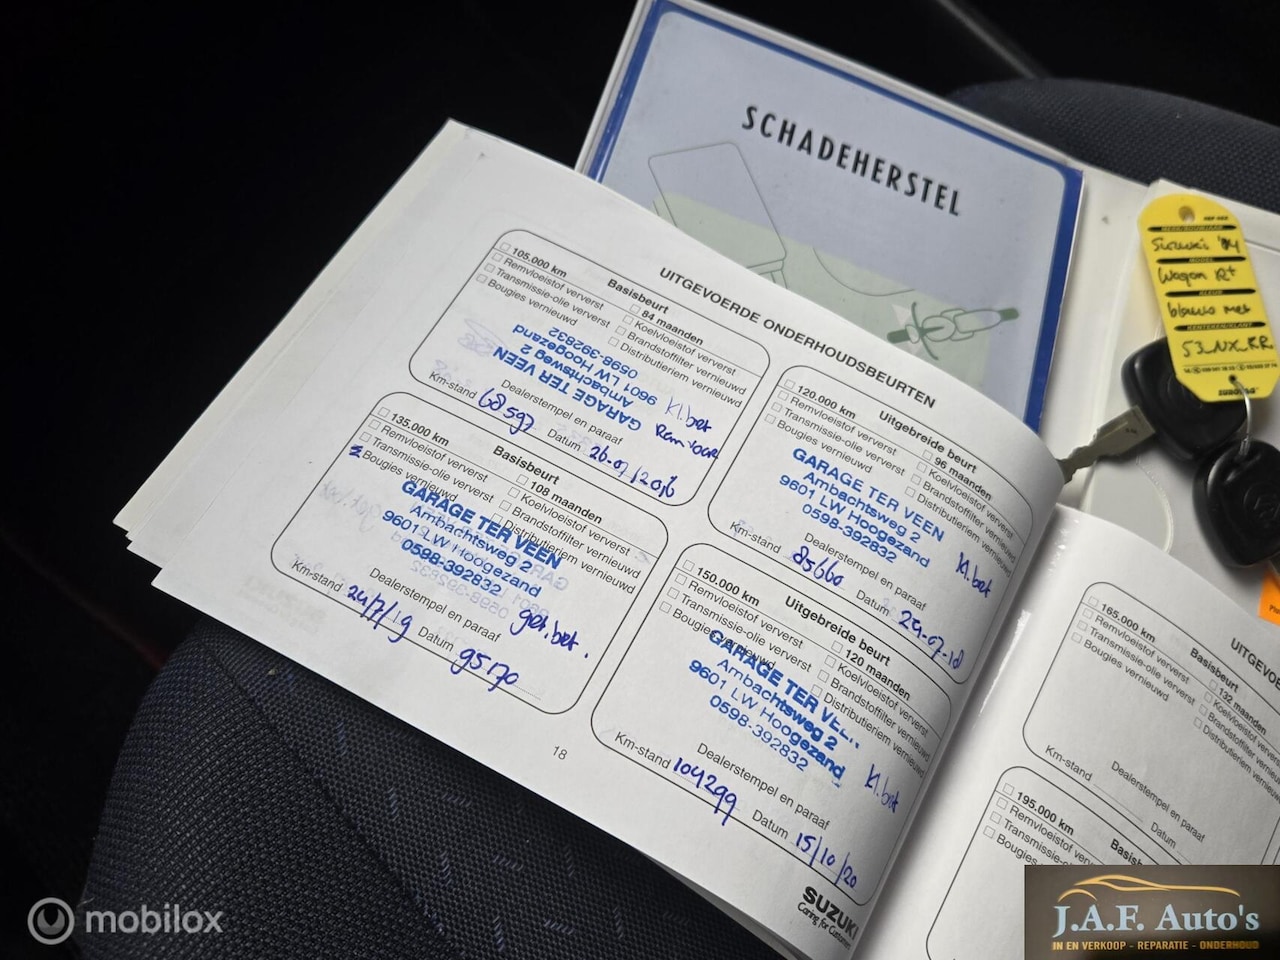 SCHADEHERSTEL
UITGEVOERDE ONDERHOUDSBEURTEN
105.000 km
Basisbeurt
84 maanden
Remvloeistof ververst
Koelvloeistof ververst
Transmissie-olie ververst
Brandstoffilter vernieuwd
Bougies vernieuwd
Distributieriem vernieuwd
GARAGE TER VEEN
Ambachtsweg 2
9601 LW Hoogezand
0598-392832
kl.bet
Dealerstempel en paraaf
Km-stand 68597
Datum
120.000 km
Uitgebreide beurt
96 maanden
Remvloeistof ververst
Koelvloeistof ververst
Transmissie-olie ververst
Brandstoffilter vernieuwd
Bougies vernieuwd
Distributieriem vernieuwd
GARAGE TER VEEN
Ambachtsweg 2
9601 LW Hoogezand
0598-392832
kl.bet
Dealerstempel en paraaf
Km-stand 85660
Datum 24-07-18
135.000 km
Basisbeurt
108 maanden
Remvloeistof ververst
Koelvloeistof ververst
Transmissie-olie ververst
Brandstoffilter vernieuwd
Bougies vernieuwd
Distributieriem vernieuwd
GARAGE TER VEEN
Ambachtsweg 2
9601 LW Hoogezand
0598-392832
Dealerstempel en paraaf
Km-stand 24/7/19
Datum 95170
150.000 km
Uitgebreide beurt
120 maanden
Remvloeistof ververst
Koelvloeistof ververst
Transmissie-olie ververst
Brandstoffilter vernieuwd
Bougies vernieuwd
Distributieriem vernieuwd
GARAGE TER VEEN
Ambachtsweg 2
9601 LW Hoogezand
0598-392832
kl.bet
Dealerstempel en paraaf
Km-stand 104299
Datum 15/10/20
18
SUZUKI
Caring for Customers
UITGEVOE
165.000 km
Basisbeurt
132 maanden
Remvloeistof ververst
Koelvloeistof ververst
Transmissie-olie ververst
Brandstoffilter vernieuwd
Bougies vernieuwd
Distributieriem vernieuwd
Dealerstempel en paraaf
Km-stand
Datum
195.000 km
Remvloeistof ververst
Transmissie-olie
Bougies
Wagon R+
blauw met
53-NX-KR
mobilox
J.A.F. Auto's
IN EN VERKOOP - REPARATIE - ONDERHOUD